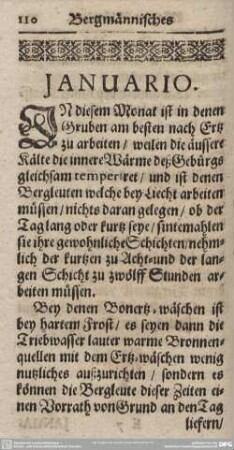 110 Bergmännisches
JANUARIO.
IN diesem Monat ist in denen
Gruben am besten nach Ertz
zu arbeiten / weilen die äussere
Kälte die innere Wärme deß Gebürgs
gleichsam temperiret / und ist denen
Bergleuten welche bey Liecht arbeiten
müssen / nichts daran gelegen / ob der
Tag lang oder kurtz seye / sintemahlen
sie ihre gewohnliche Schichten / nehm-
lich der kurtzen zu Acht- und der lan-
gen Schicht zu zwölff Stunden ar-
beiten müssen.
Bey denen Bonertz-wäschen ist
bey hartem Frost / es seyen dann die
Triebwasser lauter warme Bronnen-
quellen mit dem Ertz-wäschen wenig
nutzliches außzurichten / sondern es
können die Bergleute dieser Zeiten ei-
nen Vorrath von Grund an den Tag
liefern /